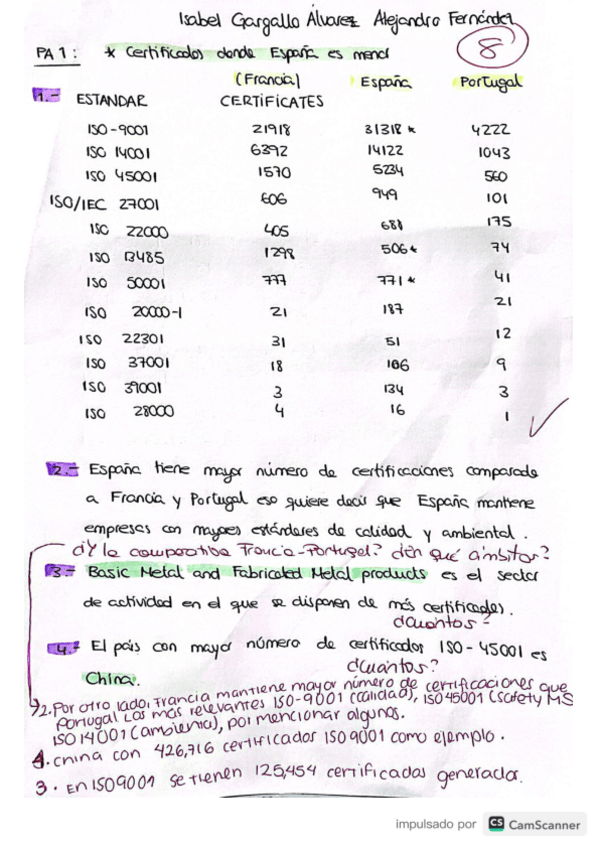 Isabel Gargallo Álvarez Alejandro Fernández
8
PA 1: * Certificados donde España es menor
(Francia) España Portugal
1.- ESTANDAR CERTIFICATES
ISO-9001 21918 31318 * 4222
ISO 14001 6392 14122 1043
ISO 45001 1570 5234 560
ISO/IEC 27001 606 949 101
ISO 22000 405 681 175
ISO 13485 1298 506 * 74
ISO 50001 777 771 * 41
ISO 20000-1 21 187 21
ISO 22301 31 51 12
ISO 37001 18 106 9
ISO 39001 3 134 3
ISO 28000 4 16 1
2.- España tiene mayor número de certificaciones comparado
a Francia y Portugal eso quiere decir que España mantiene
empresas con mayores estándares de calidad y ambiental.
¿Y la comparativa Francia-Portugal? ¿En qué ámbitos?
3.- Basic Metal and Fabricated Metal products es el sector
de actividad en el que se disponen de más certificados.
¿Cuántos?
4.- El país con mayor número de certificados ISO-45001 es
China.
¿Cuántos?
2. Por otro lado, Francia mantiene mayor número de certificaciones que
Portugal Las más relevantes ISO-9001 (calidad), ISO 45001 (Safety MS
ISO 14001 (Ambiente), por mencionar algunos.
4. China con 426,716 certificados ISO 9001 como ejemplo.
3. En ISO9001 se tienen 125,454 certificadas generador.
impulsado por CS CamScanner